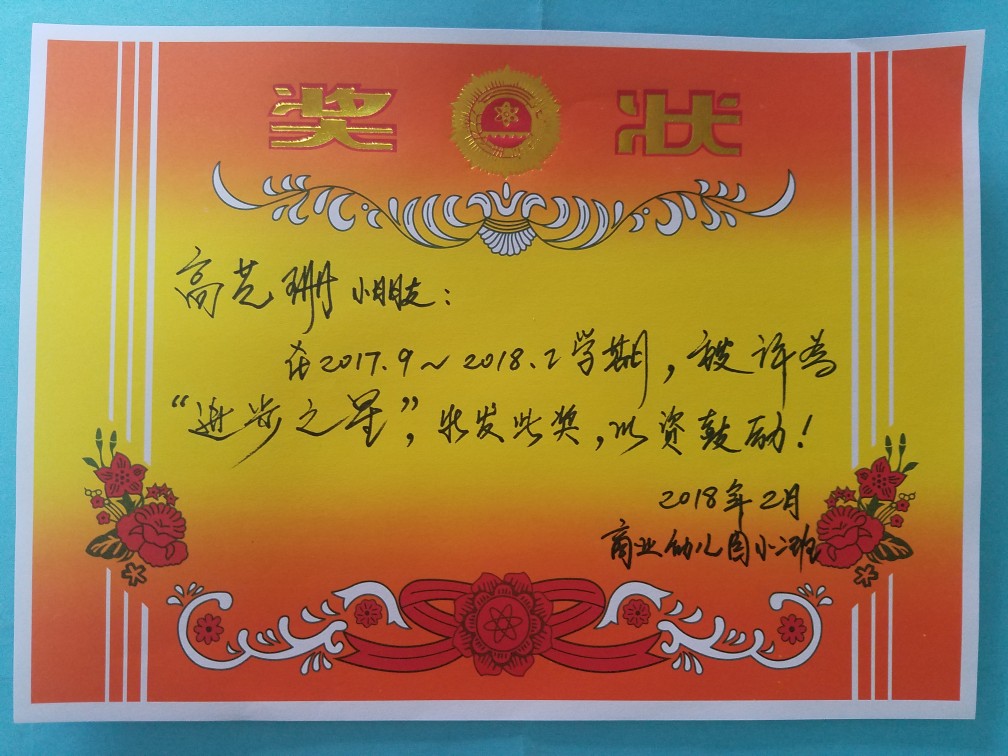 奖状
高艺珊小朋友：
在2017.9~2018.2学期，被评为
“进步之星”，特发此奖，以资鼓励！
2018年2月
商业幼儿园小二班